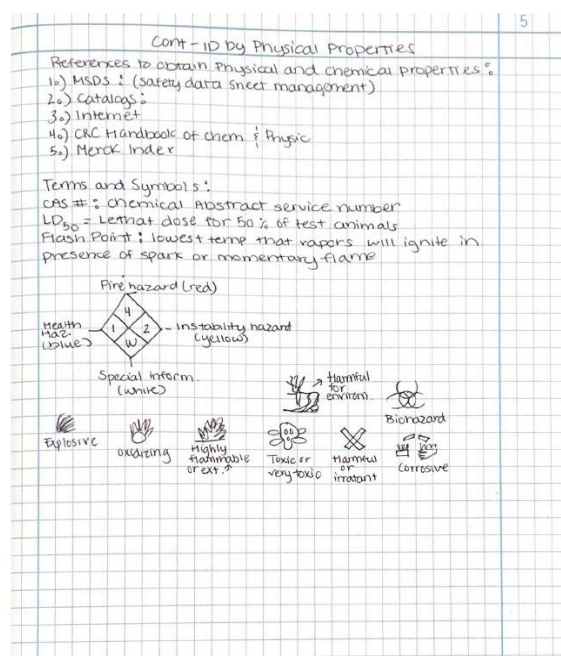 5
Cont - ID by Physical Properties
References to obtain Physical and chemical properties:
1.) MSDS : (safety data sheet management)
2.) Catalogs:
3.) Internet
4.) CRC Handbook of chem & Physic
5.) Merck Index
Terms and Symbols:
CAS #: Chemical Abstract service number
LD50 = Lethat dose for 50% of test animals
Flash Point: lowest temp that vapors will ignite in
presence of spark or momentary flame
Fire hazard (red)
4
Health
Haz.
(blue)
1
2
instability hazard
(yellow)
W
Special inform.
(white)
Harmful
for
environ.
Biohazard
Explosive
oxidizing
Highly
flammable
or ext.
Toxic or
very toxic
Harmful
or
irratant
Corrosive